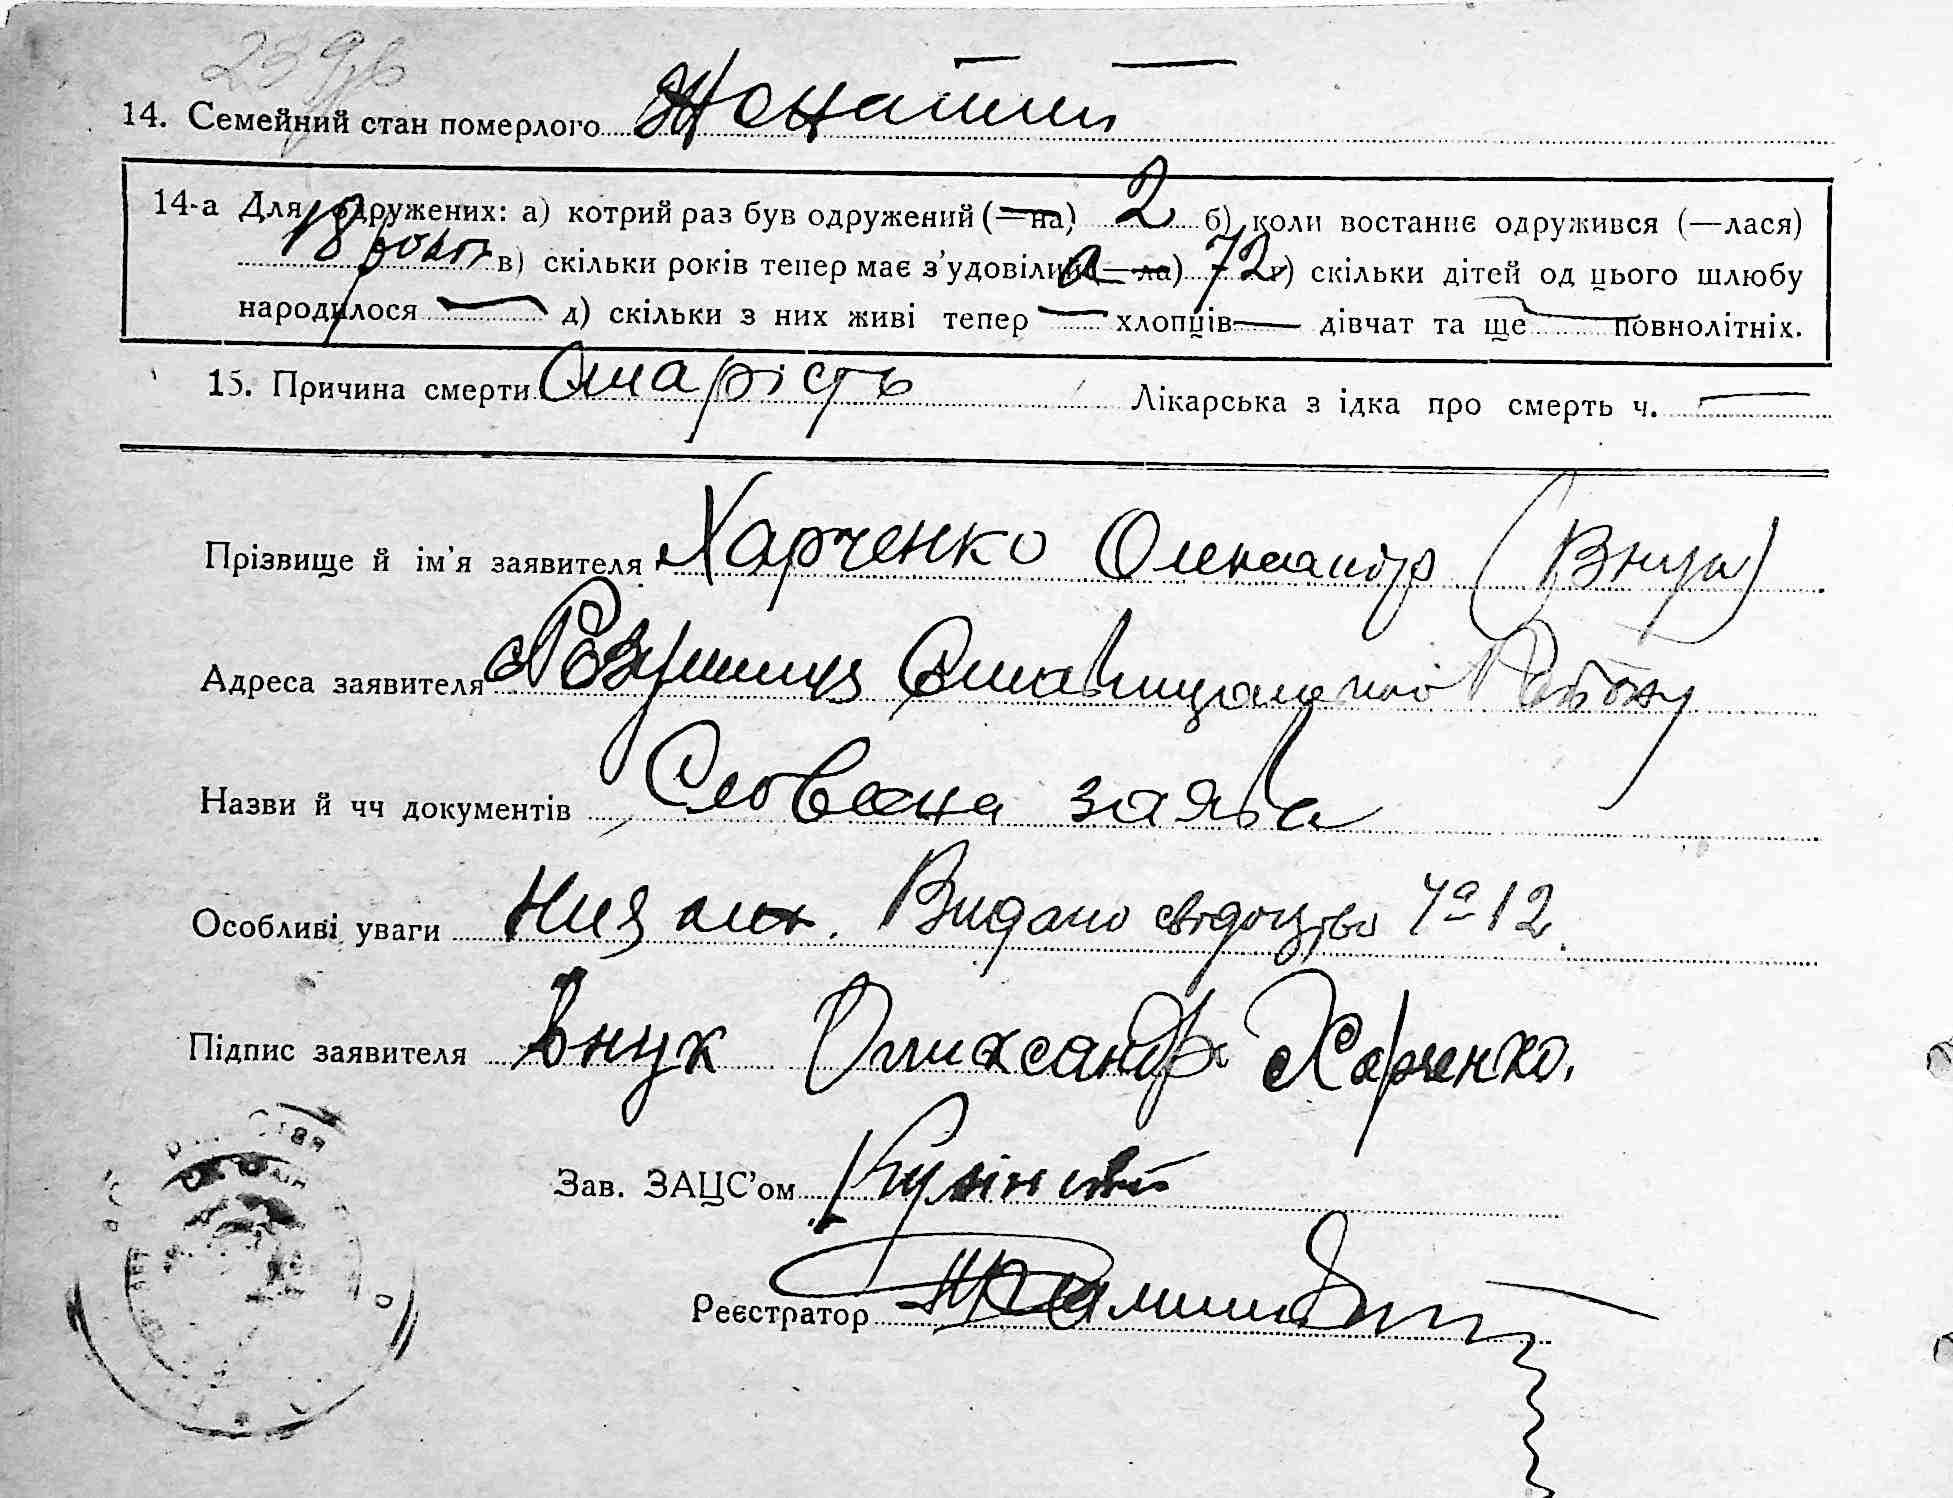 14. Семейний стан померлого Жонатий
14-а Для одружених: а) котрий раз був одружений (—на) 2 б) коли востаннє одружився (—лася)
18 в) скільки років тепер має з’удовіли — ла) 72 г) скільки дітей од цього шлюбу
народилося — д) скільки з них живі тепер — хлопців — дівчат та ще — повнолітніх.
15. Причина смерти Старість Лікарська з ідка про смерть ч. —
Прізвище й ім’я заявителя Харченко Олександр (Внук)
Адреса заявителя Розумниця Ставищанського Району
Назви й чч документів Словесна заява
Особливі уваги Видано свідоцтво 12.
Підпис заявителя Внук Олихсандр Харченко.
Зав. ЗАЦС’ом
Реєстратор